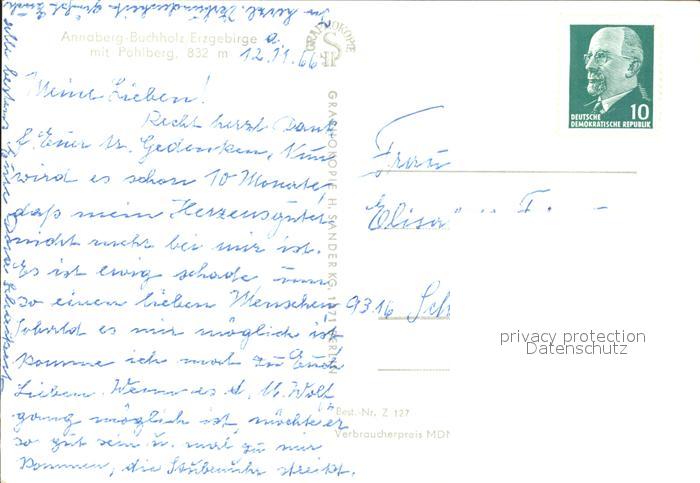 Annaberg-Buchholz, Erzgebirge
mit Pöhlberg, 832 m
12.11.66
Meine Lieben!
Recht herzl. Dank
f. Euer tr. Gedenken. Nun
wird es schon 10 Monate,
daß mein Herzensguter
nicht mehr bei mir ist.
Es ist ewig schade um
so einen lieben Menschen
Sobald es mir möglich ist
komme ich mal zu Euch
Lieben. Wenn es d. Wolf
gang möglich ist, möchte er
so gut sein u. mal zu mir
kommen, die Stubenuhr streikt.
In herzl. Verbundenheit grüßt Euch
alle bestens Eure
GRAPHOKOPIE
GRAPHOKOPIE H. SANDER KG, BERLIN
DEUTSCHE
DEMOKRATISCHE REPUBLIK
10
Frau
Elisa
9316 Sch
Best.-Nr. Z 127
Verbraucherpreis MDN
privacy protection
Datenschutz